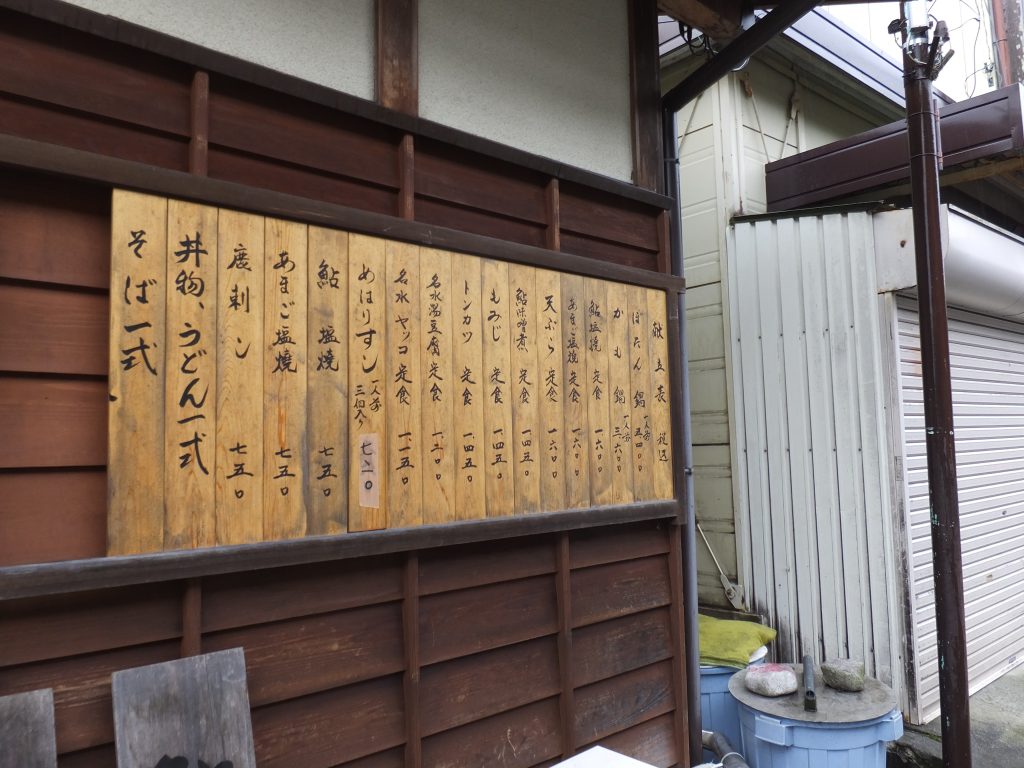 献立表 税込
ぼたん鍋 一人前 五四〇〇
かも鍋 一人前 三六〇〇
鮎塩焼 定食 一六〇〇
あまご塩焼 定食 一六〇〇
天ぷら 定食 一六〇〇
鮎味噌煮 定食 一四五〇
もみじ 定食 一四五〇
トンカツ 定食 一四五〇
名水湯豆腐定食
名水ヤッコ定食 一一五〇
めはりすし 一人前 三個入り
鮎 塩焼 七五〇
あまご塩焼 七五〇
鹿刺シ 七五〇
丼物、うどん一式
そば一式